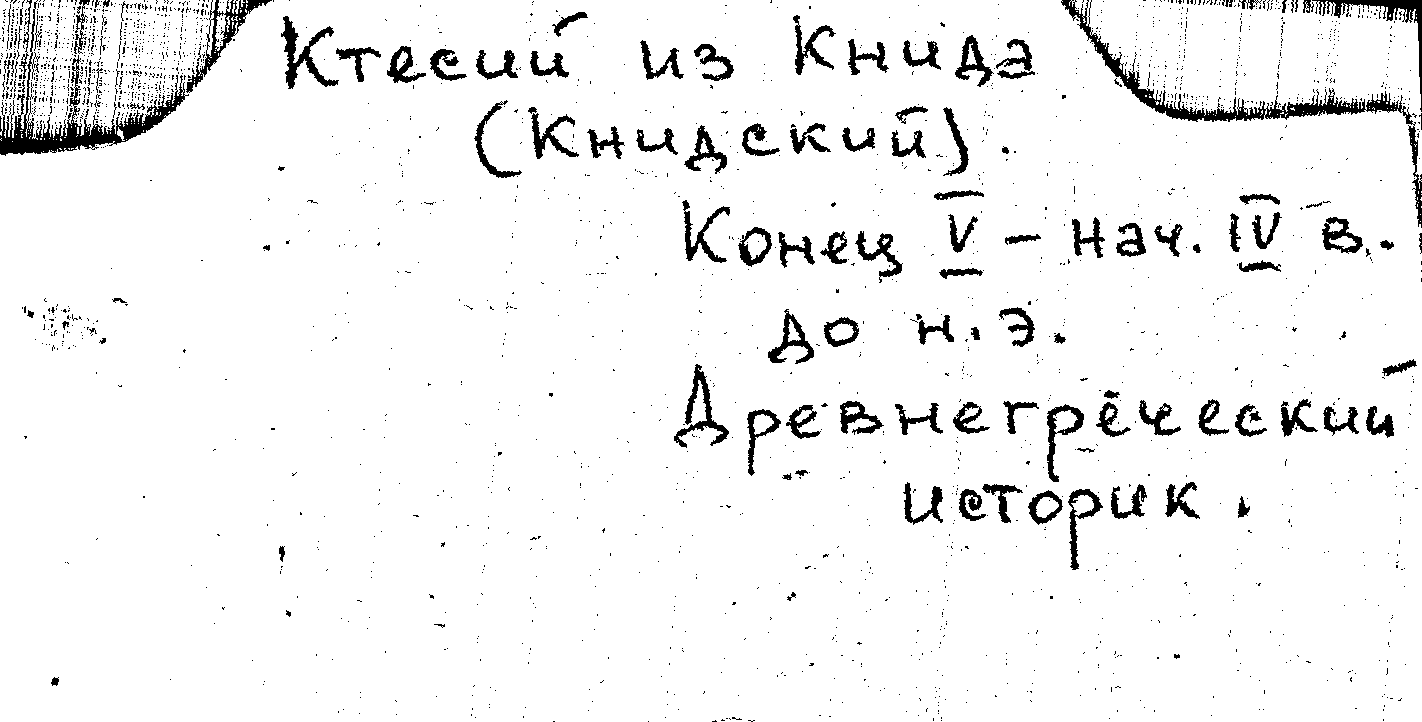 Ктесий из Книда
(Книдский).
Конец V – нач. IV в.
до н.э.
Древнегреческий
историк.